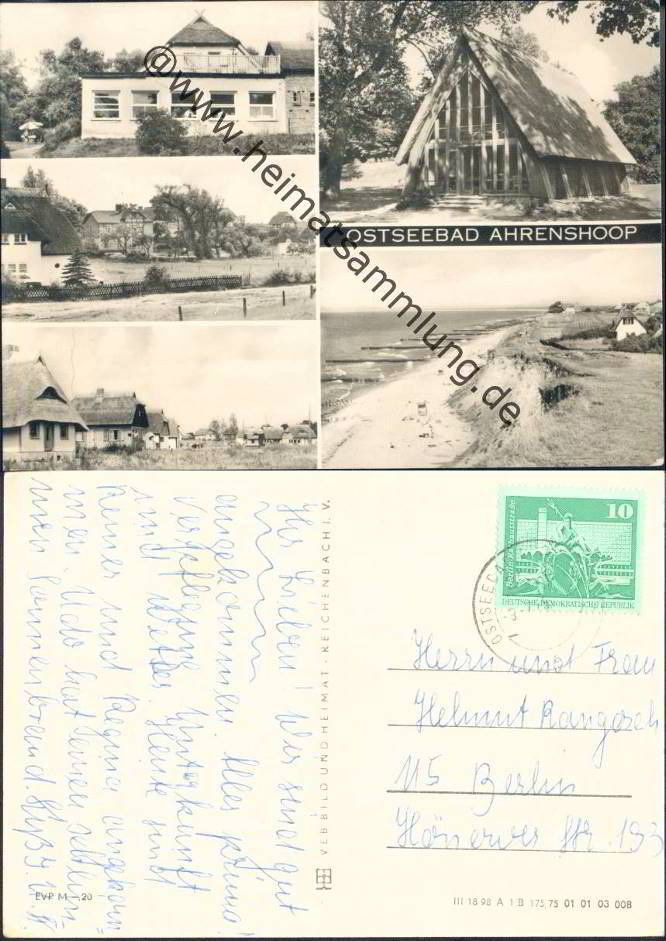 @www.heimatsammlung.de
OSTSEEBAD AHRENSHOOP
Ihr Lieben! Wir sind gut
angekommen. Alles prima!
Verpflegung Unterkunft
und Wetter. Heute sind
Reiner und Regina angekom-
men. Udo hat seinen
Sonnenbrand.
VEB BILD UND HEIMAT · REICHENBACH I. V.
EVP M –,20
10
Berlin, Rathausstraße
DEUTSCHE DEMOKRATISCHE REPUBLIK
OSTSEEBAD
Herrn und Frau
Helmut Rangosch
115 Berlin
Str. 193
III 18 98 A 1 B 175/75 01 01 03 008